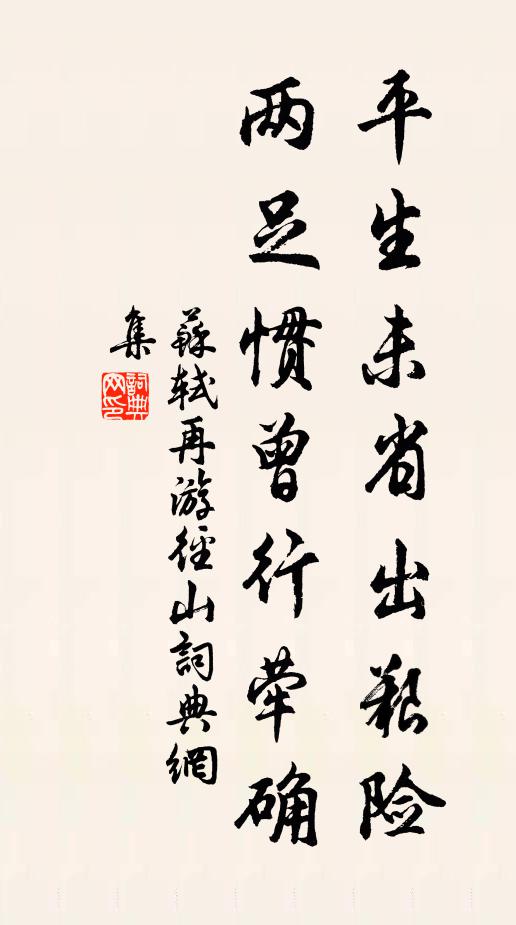 平生未省出艱险
两足惯曾行荦确
蘇轼再游徑山詞典網
集
詞典
网印